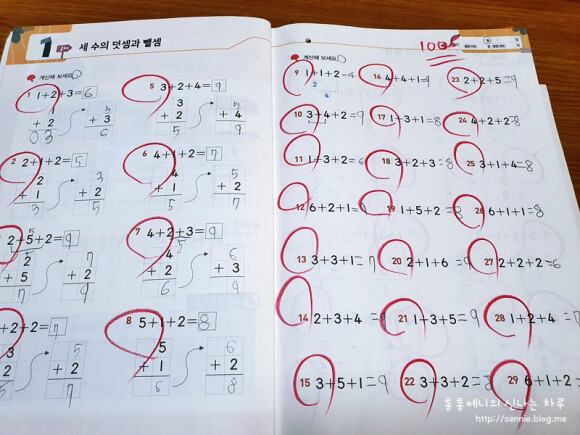 1 세 수의 덧셈과 뺄셈
계산해 보세요
1 1+2+3=6
1
+2
03
3
+3
6
5 3+2+4=9
3
+2
5
5
+4
9
2 2+1+2=5
2
+1
3
3
+2
5
6 4+1+2=7
4
+1
5
5
+2
7
2+5+2=9
2
+5
7
7
+2
9
7 4+2+3=9
5
4
+2
6
6
+3
9
+2+2=7
3
+2
5
5
+2
7
8 5+1+2=8
5
+1
6
6
+2
8
100
계산해 보세요
9 1+1+2=4
2
4
10 3+4+2=9
11 1+3+2=6
12 6+2+1=9
13 3+3+1=7
14 2+3+4=9
15 3+5+1=9
16 4+4+1=9
17 1+3+1=
18 2+3+3=8
19 1+5+2=8
20 2+1+6=9
21 1+3+5=9
22 3+3+2=8
23 2+2+5=9
24 4+2+2=8
25 3+1+4=8
26 6+1+1=8
27 2+2+2=6
28 1+2+4=7
29 6+1+2=
통통쎄니의 신나는 하루
http://sennie.blog.me